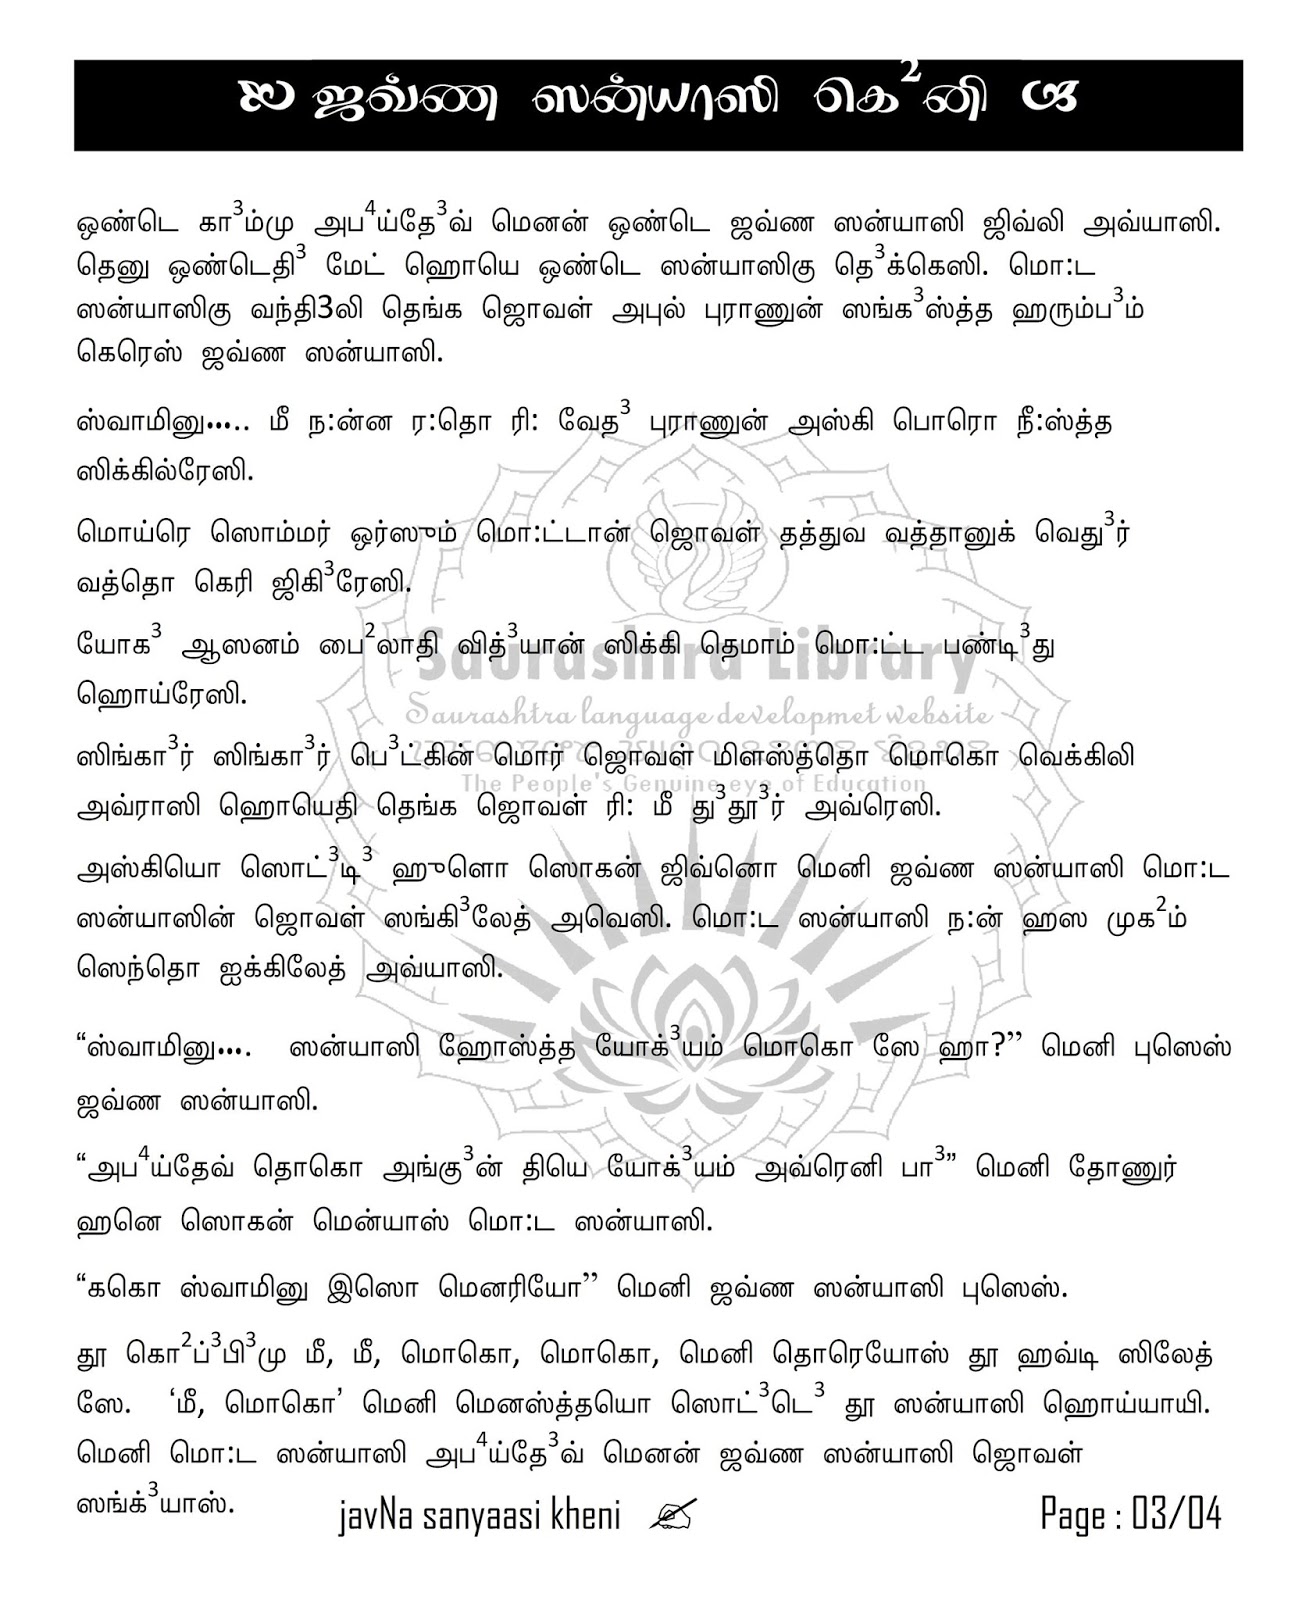 ஜவ்ண ஸன்யாஸி கெ²னி
ஒண்டெ கா³ம்மு அப⁴ய்தே³வ் மெனன் ஒண்டெ ஜவ்ண ஸன்யாஸி ஜிவ்லி அவ்யாஸி.
தெனு ஒண்டெதி³ மேட் ஹொயெ ஒண்டெ ஸன்யாஸிகு தெ³க்கெஸி. மொ:ட
ஸன்யாஸிகு வந்தி3லி தெங்க ஜொவள் அபுல் புராணுன் ஸங்க³ஸ்த்த ஹரும்ப³ம்
கெரெஸ் ஜவ்ண ஸன்யாஸி.
ஸ்வாமினு..... மீ ந:ன்ன ர:தொ ரி: வேத³ புராணுன் அஸ்கி பொரொ நீ:ஸ்த்த
ஸிக்கில்ரேஸி.
மொய்ரெ ஸொம்மர் ஒர்ஸும் மொ:ட்டான் ஜொவள் தத்துவ வத்தானுக் வெது³ர்
வத்தொ கெரி ஜிகி³ரேஸி.
யோக³ ஆஸனம் பை²லாதி வித்³யான் ஸிக்கி தெமாம் மொ:ட்ட பண்டி³து
ஹொய்ரேஸி.
ஸிங்கா³ர் ஸிங்கா³ர் பெ³ட்கின் மொர் ஜொவள் மிளஸ்த்தொ மொகொ வெக்கிலி
அவ்ராஸி ஹொயெதி தெங்க ஜொவள் ரி: மீ து³தூ³ர் அவ்ரெஸி.
அஸ்கியொ ஸொட்³டி³ ஹுளொ ஸொகன் ஜிவ்னொ மெனி ஜவ்ண ஸன்யாஸி மொ:ட
ஸன்யாஸின் ஜொவள் ஸங்கி³லேத் அவெஸி. மொ:ட ஸன்யாஸி ந:ன் ஹஸ முக²ம்
ஸெந்தொ ஐக்கிலேத் அவ்யாஸி.
“ஸ்வாமினு.... ஸன்யாஸி ஹோஸ்த்த யோக்³யம் மொகொ ஸே ஹா?” மெனி புஸெஸ்
ஜவ்ண ஸன்யாஸி.
“அப⁴ய்தேவ் தொகொ அங்கு³ன் தியெ யோக்³யம் அவ்ரெனி பா³” மெனி தோணுர்
ஹனெ ஸொகன் மென்யாஸ் மொ:ட ஸன்யாஸி.
“ககொ ஸ்வாமினு இஸொ மெனரியோ” மெனி ஜவ்ண ஸன்யாஸி புஸெஸ்.
தூ கொ²ப்³பி³மு மீ, மீ, மொகொ, மொகொ, மெனி தொரெயோஸ் தூ ஹவ்டி ஸிலேத்
ஸே. ‘மீ, மொகொ’ மெனி மெனஸ்த்தயொ ஸொட்³டெ³ தூ ஸன்யாஸி ஹொய்யாயி.
மெனி மொ:ட ஸன்யாஸி அப⁴ய்தே³வ் மெனன் ஜவ்ண ஸன்யாஸி ஜொவள்
ஸங்க்³யாஸ்.
javNa sanyaasi kheni
Page : 03/04
Saurashtra Library
Saurashtra language developmet website
The People's Genuine eye of Education